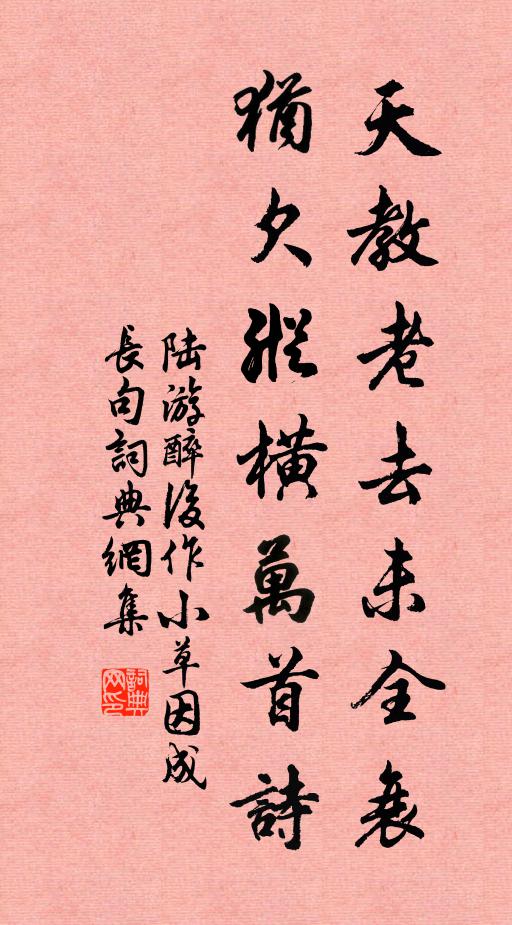 天教老去未全衰
猶欠縱橫萬首詩
陸游醉後作小草因成
長句詞典網集
詞典网印